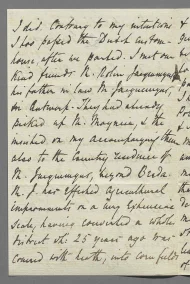 I did. Contrary to my intentions
I has passed the Dutch custom-
house, after we parted. I met our
kind friends M. Robin Jacquemyns &
his father in law M. Jacquemyns,
in Antwerp. They had already
picked up M. Moynier, & the
insisted, on my accompanying them
also to the country residence of
M. Jacquemyns, beyond Breda.
M. J. has effected agricultural
improvements on a very extensive
scale, having converted a whole
district wh. 25 years ago was
covered with heath, into cornfields